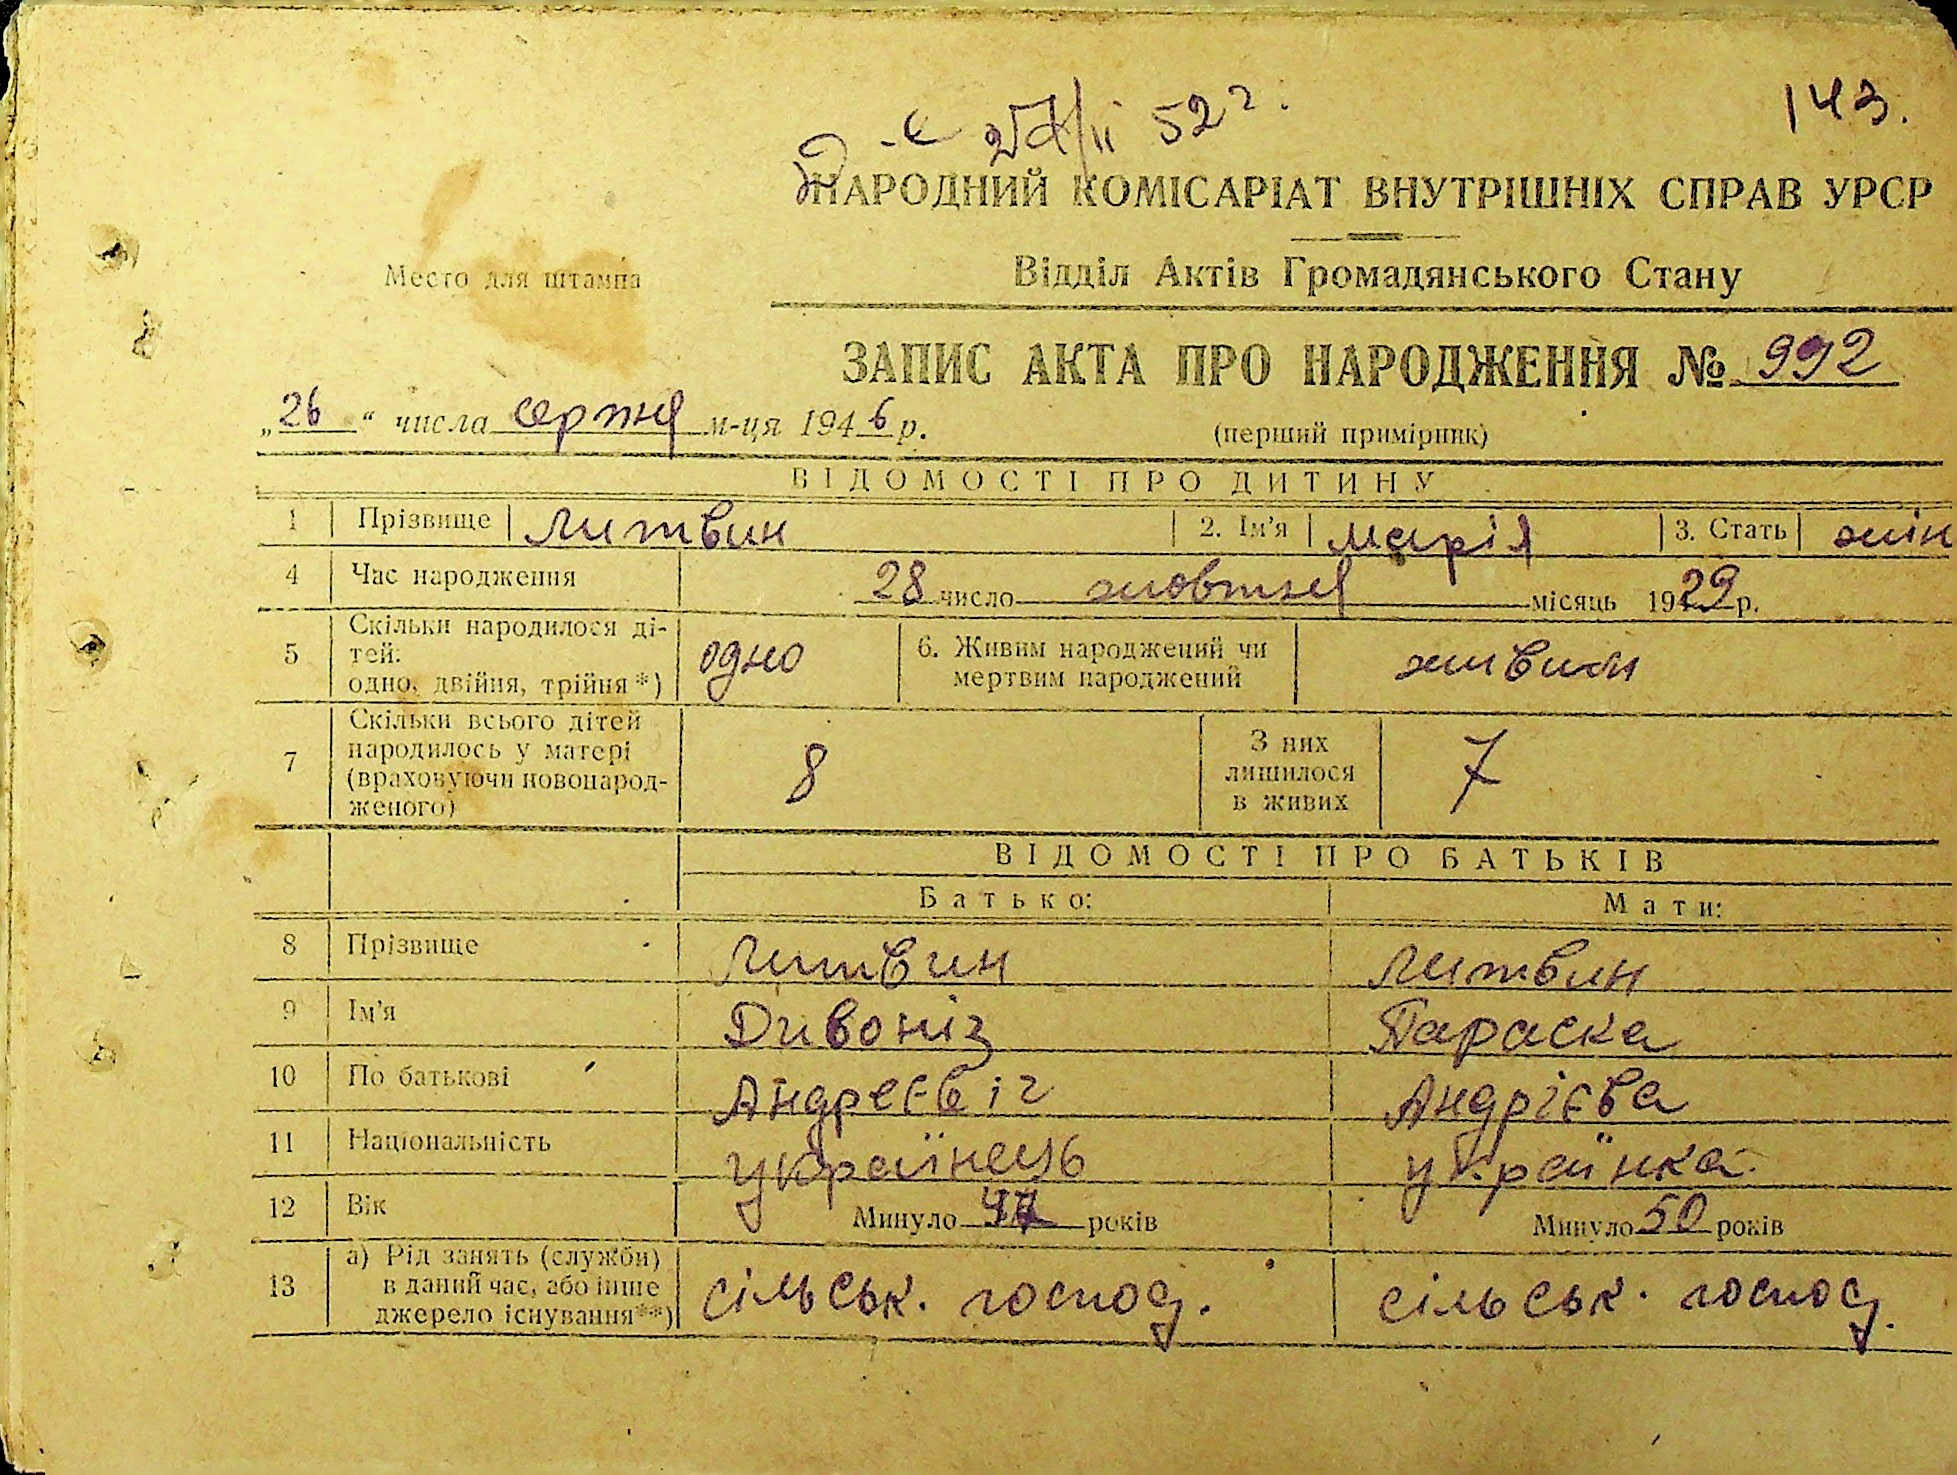 52 г.
143.
НАРОДНИЙ КОМІСАРІАТ ВНУТРІШНІХ СПРАВ УРСР
Место для штампа
Відділ Актів Громадянського Стану
ЗАПИС АКТА ПРО НАРОДЖЕННЯ № 992
„26“ числа серпня м-ця 1946 р.
(перший примірник)
ВІДОМОСТІ ПРО ДИТИНУ
1 Прізвище Литвин 2. Ім'я Марія 3. Стать жін
4 Час народження 28 число жовтня місяць 1929 р.
5 Скільки народилося ді-
тей:
одно, двійня, трійня*) одно
6. Живим народжений чи
мертвим народжений живим
7 Скільки всього дітей
народилось у матері
(враховуючи новонарод-
женого) 8
З них
лишилося
в живих 7
ВІДОМОСТІ ПРО БАТЬКІВ
Батько: Мати:
8 Прізвище Литвин Литвин
9 Ім'я Дивоніз Параска
10 По батькові Андреєвіч Андрієва
11 Національність українець українка
12 Вік Минуло років Минуло 50 років
13 а) Рід занять (служби)
в даний час, або інше
джерело існування**) сільськ. господ. сільськ. господ.